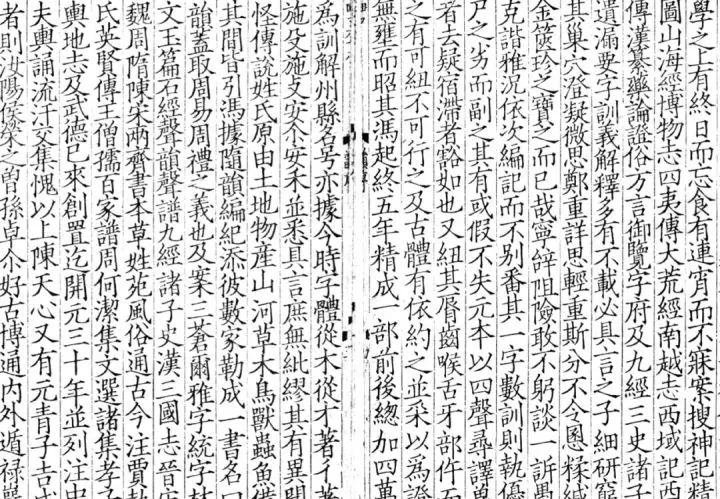 學之上有終日而忘食有連宵而不寐案搜神記精
圖山海經博物志四夷傳大荒經南越志西域記西
傳漢纂藥論證俗方言御覽字府及九經三史諸
遺漏要字訓義解釋多有不載必具言之子細研窮
其巢穴澄凝微思鄭重詳思輕重斯分不令慁糅緘
金篋珍之寶之而已哉寧辝阻險敢不躬談一訢愚
克諧雅況依次編記而不別番其一字數訓則執優
尸之劣而副之其有或假不失元本以四聲尋譯冀
者去疑宿滯者豁如也又紐其脣齒喉舌牙部仵而
之有可紐不可行之及古體有依約之並采以為證
無壅而昭其馮起終五年精成一部前後緫加四萬
為訓解州縣名号亦據今時字體從木從才著亻著
施殳施攴安尒安禾並悉具言庶無紕繆其有異聞
怪傳說姓氏原由土地物産山河草木鳥獸蟲魚備
其間皆引馮據隨韻編紀添彼數家勒成一書名曰
韻蓋取周易周禮之義也及案三蒼爾雅字統字林
文玉篇石經聲韻聲譜九經諸子史漢三國志晉宋
魏周隋陳宋兩齊書本草姓苑風俗通古今注賈執
氏英賢傳王僧孺百家譜周何潔集文選諸集孝子
輿地志及武德已來創置迄開元三十年並列注中
夫輿誦流汗交集愧以上陳天心又有元青子吉成
者則汝陽侯榮之曾孫卓尒好古博通內外遁祿巖